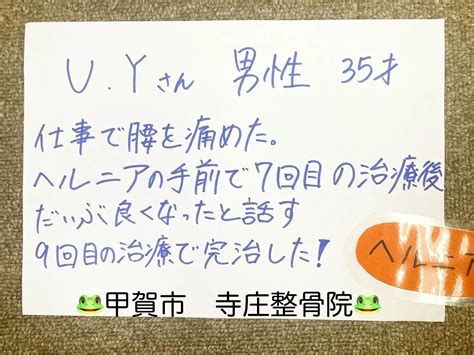 U.Yさん 男性 35才
仕事で腰を痛めた。
ヘルニアの手前で7回目の治療後
だいぶ良くなったと話す
9回目の治療で完治した!
ヘルニア
🐸甲賀市 寺庄整骨院🐸